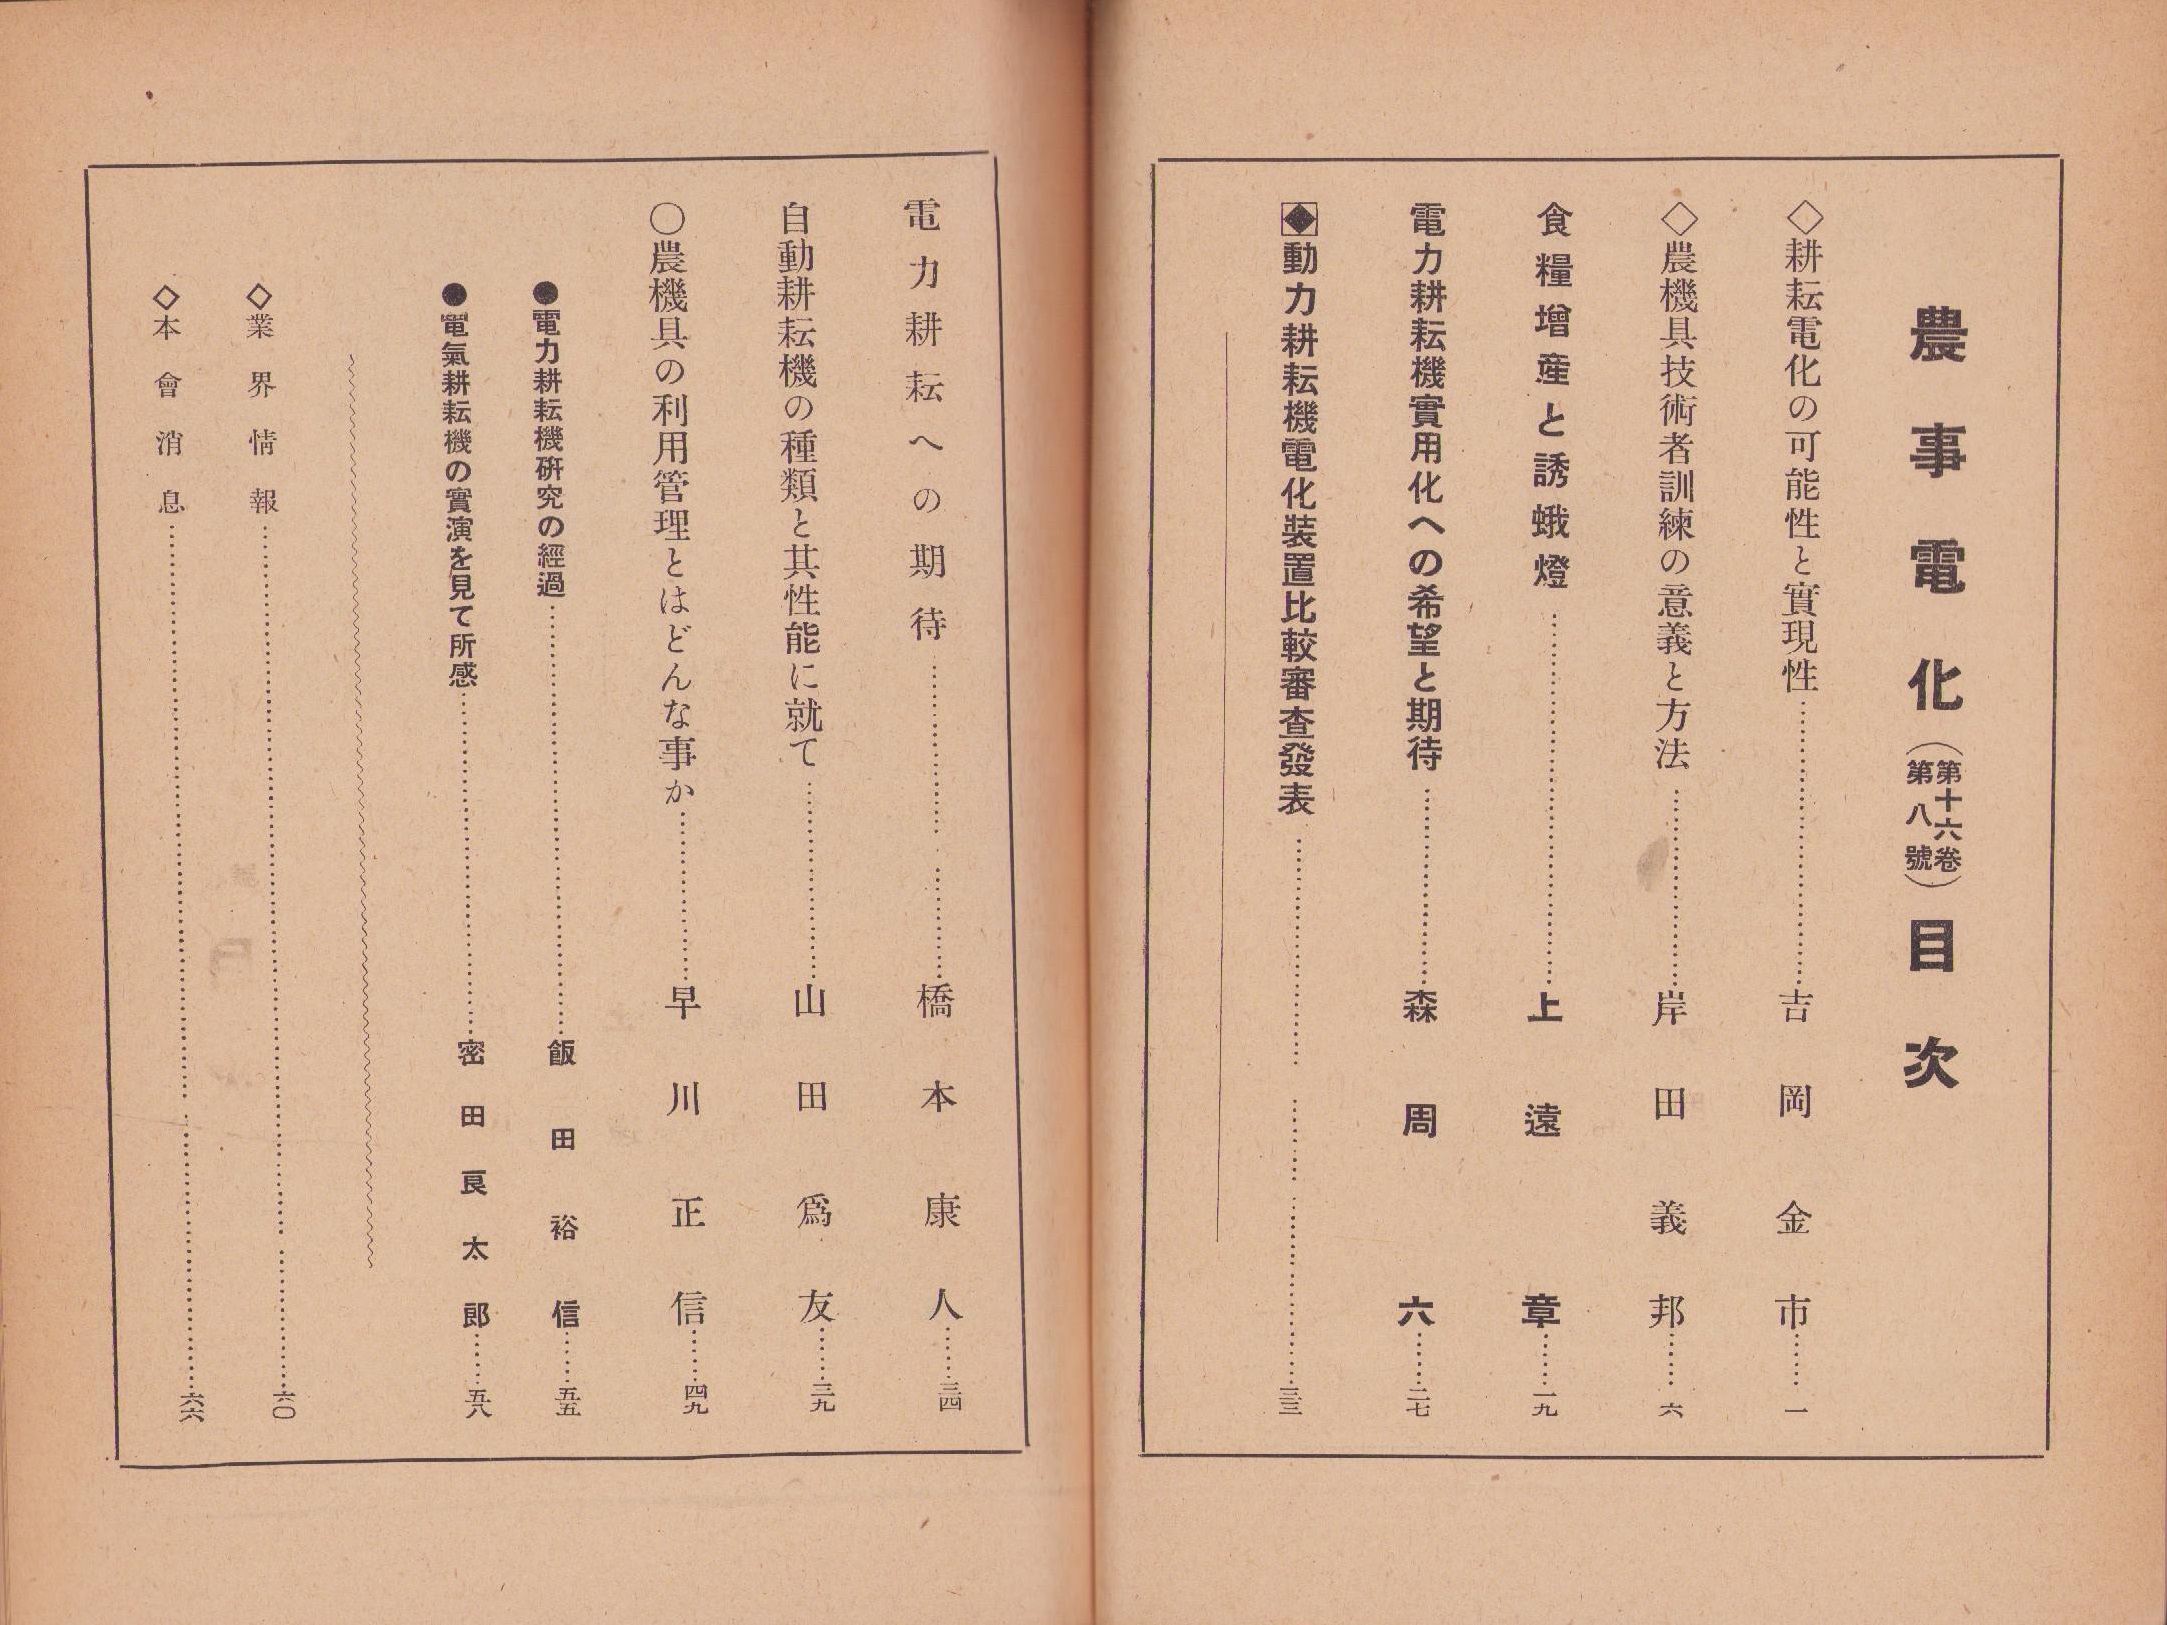 農事電化（第十六卷第八號）目次
◇耕耘電化の可能性と實現性……吉岡金市……一
◇農機具技術者訓練の意義と方法……岸田義邦……六
食糧增產と誘蛾燈……上遠章……一九
電力耕耘機實用化への希望と期待……森周六……二七
◆動力耕耘機電化裝置比較審查發表……三三
電力耕耘への期待……橋本康人……三四
自動耕耘機の種類と其性能に就て……山田爲友……三九
〇農機具の利用管理とはどんな事か……早川正信……四九
●電力耕耘機硏究の經過……飯田裕信……五五
●電氣耕耘機の實演を見て所感……密田良太郎……五八
◇業界情報……六〇
◇本會消息……六六